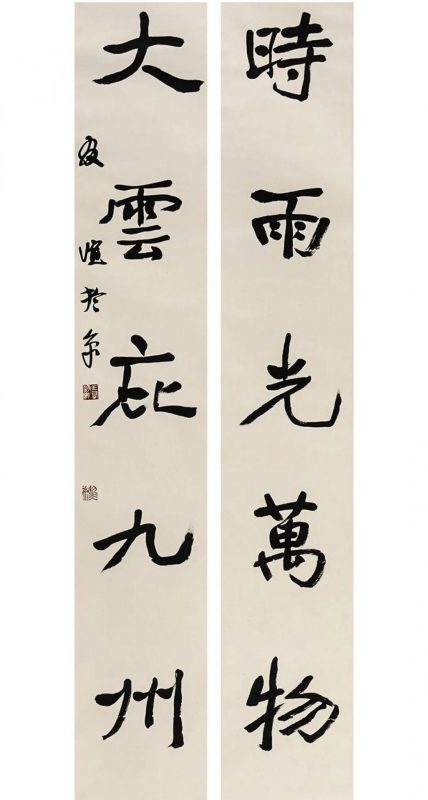 時雨光萬物
大雲庇九州
於京